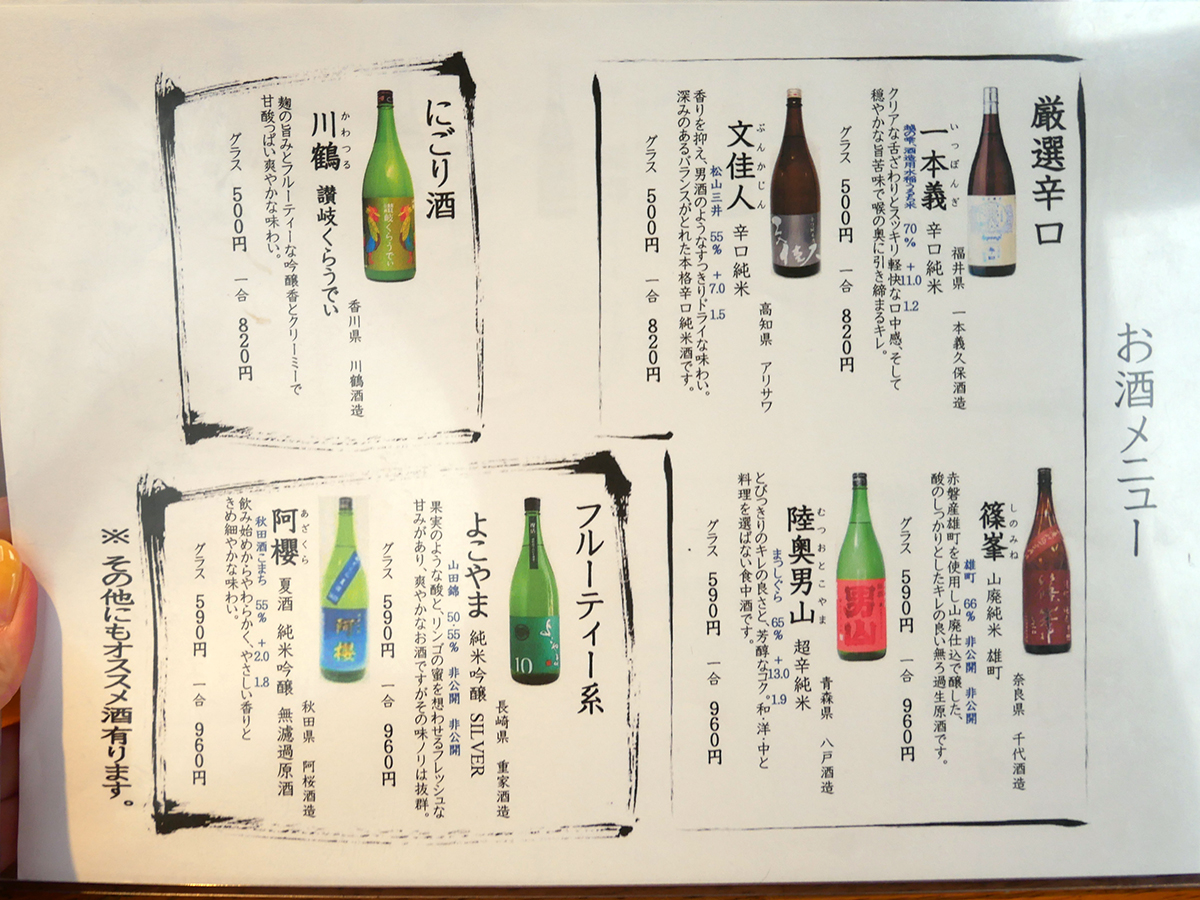 お酒メニュー
厳選辛口
いっぽんぎ
一本義 辛口純米
福井県 一本義久保酒造
越の雫、酒造用水稲うるち米 70% +11.0 1.2
クリアな舌ざわりとスッキリ軽快な口中感、そして
穏やかな旨苦味で喉の奥に引き締まるキレ。
グラス 500円 一合 820円
ぶんかじん
文佳人 辛口純米
高知県 アリサワ
松山三井 55% +7.0 1.5
香りを抑え、男酒のようなすっきりドライな味わい。
深みのあるバランスがとれた本格辛口純米酒です。
グラス 500円 一合 820円
しのみね
篠峯 山廃純米 雄町
奈良県 千代酒造
雄町 66% 非公開 非公開
赤磐産雄町を使用し山廃仕込で醸した、
酸のしっかりとしたキレの良い無ろ過生原酒です。
グラス 590円 一合 960円
むつおとこやま
陸奥男山 超辛純米
青森県 八戸酒造
まっしぐら 65% +13.0 1.9
とびっきりのキレの良さと、芳醇なコク。和・洋・中と
料理を選ばない食中酒です。
グラス 590円 一合 960円
にごり酒
かわつる
川鶴 讃岐くらうでぃ
香川県 川鶴酒造
麹の旨みとフルーティーな吟醸香とクリーミーで
甘酸っぱい爽やかな味わい。
グラス 500円 一合 820円
フルーティー系
よこやま 純米吟醸 SILVER
長崎県 重家酒造
山田錦 50・55% 非公開 非公開
果実のような酸と、リンゴの蜜を想わせるフレッシュな
甘みがあり、爽やかなお酒ですがその味ノリは抜群。
グラス 590円 一合 960円
あざくら
阿櫻 夏酒 純米吟醸 無濾過原酒
秋田県 阿桜酒造
秋田酒こまち 55% +2.0 1.8
飲み始めからやわらかく、やさしい香りと
きめ細やかな味わい。
グラス 590円 一合 960円
※ その他にもオススメ酒有ります。
讃岐くらうでぃ
文佳人
男山
10
阿櫻